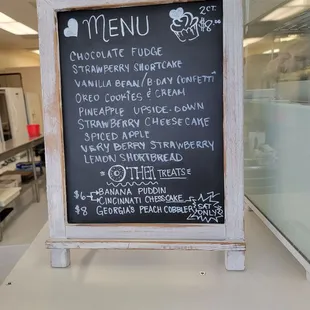 MENU
2ct.
$8.00
CHOCOLATE FUDGE
STRAWBERRY SHORTCAKE
VANILLA BEAN/B-DAY CONFETTI
OREO COOKIES & CREAM
PINEAPPLE UPSIDE-DOWN
STRAWBERRY CHEESECAKE
SPICED APPLE
VERY BERRY STRAWBERRY
LEMON SHORTBREAD
OTHER TREATS
$6 BANANA PUDDIN
CINCINNATI CHEESECAKE
$8 GEORGIA'S PEACH COBBLER
SAT
ONLY